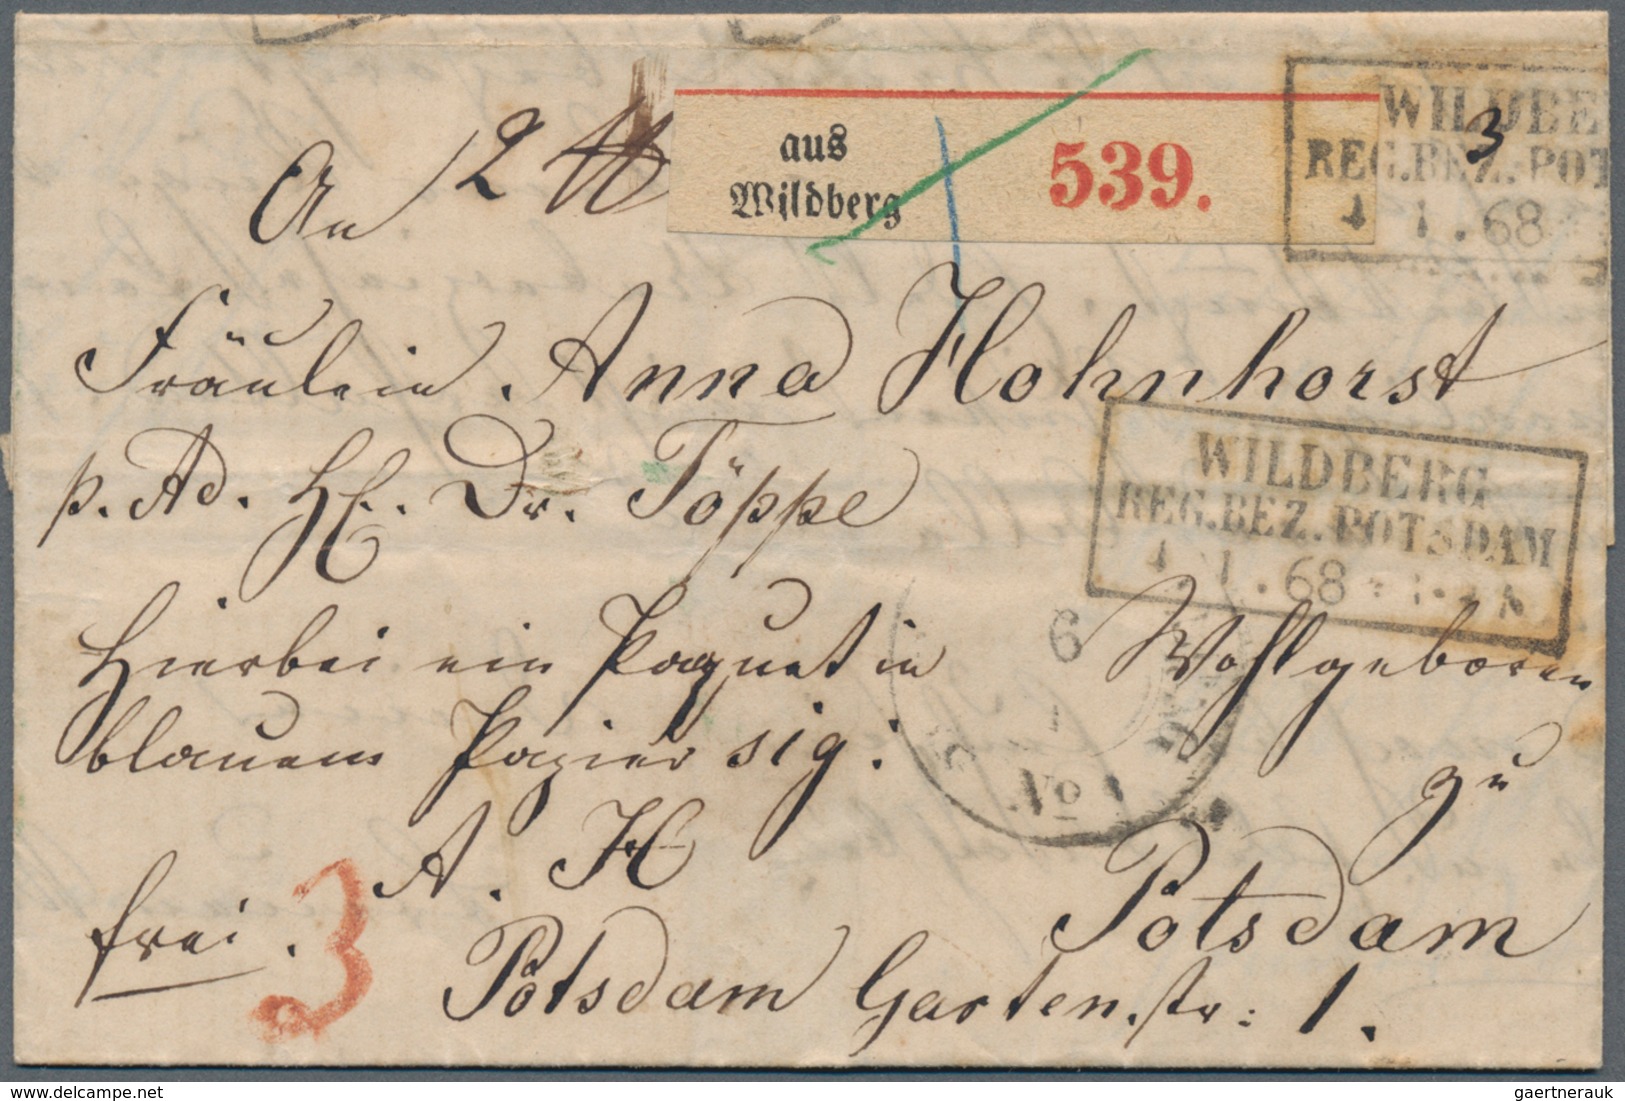 An 2 ℔
aus
Wildberg
539.
WILDBE
REG.BEZ.POT
4 1.68
3
Fräulein Anna Hohnhorst
p. Ad. H. Dr. Töppe
WILDBERG
REG.BEZ.POTSDAM
4.1.68
Hierbei ein Paquet in
blauem Papier sig:
A. H
Wohlgeboren
zu
Potsdam
6
1
No 1
frei. 3
Potsdam Garten.str: 1.
gaertnerauk